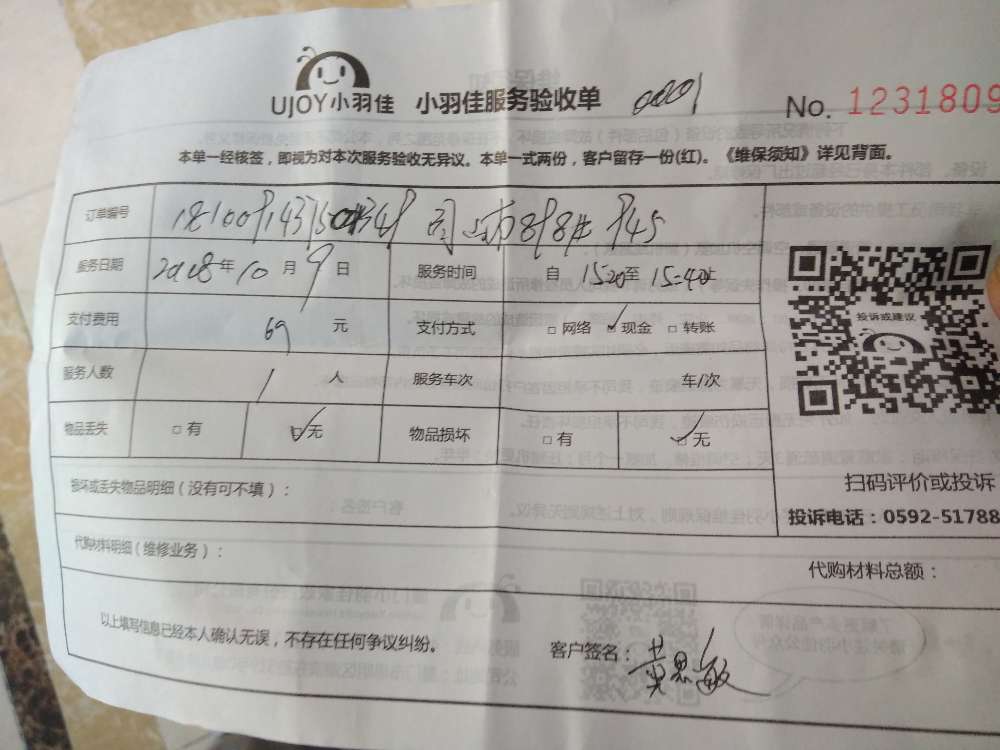 UJOY小羽佳 小羽佳服务验收单 0001 No. 1231809
本单一经核签，即视为对本次服务验收无异议。本单一式两份，客户留存一份(红)。《维保须知》详见背面。
订单编号
服务日期 2018年10月9日 服务时间 自15:20至15:40止
支付费用 69 元 支付方式 □网络 ☑现金 □转账
服务人数 1 人 服务车次 车/次
物品丢失 □有 ☑无 物品损坏 □有 ☑无
投诉或建议
扫码评价或投诉
投诉电话：0592-51788
损坏或丢失物品明细（没有可不填）：
代购材料明细（维修业务）：
代购材料总额：
以上填写信息已经本人确认无误，不存在任何争议纠纷。
客户签名：黄思敏